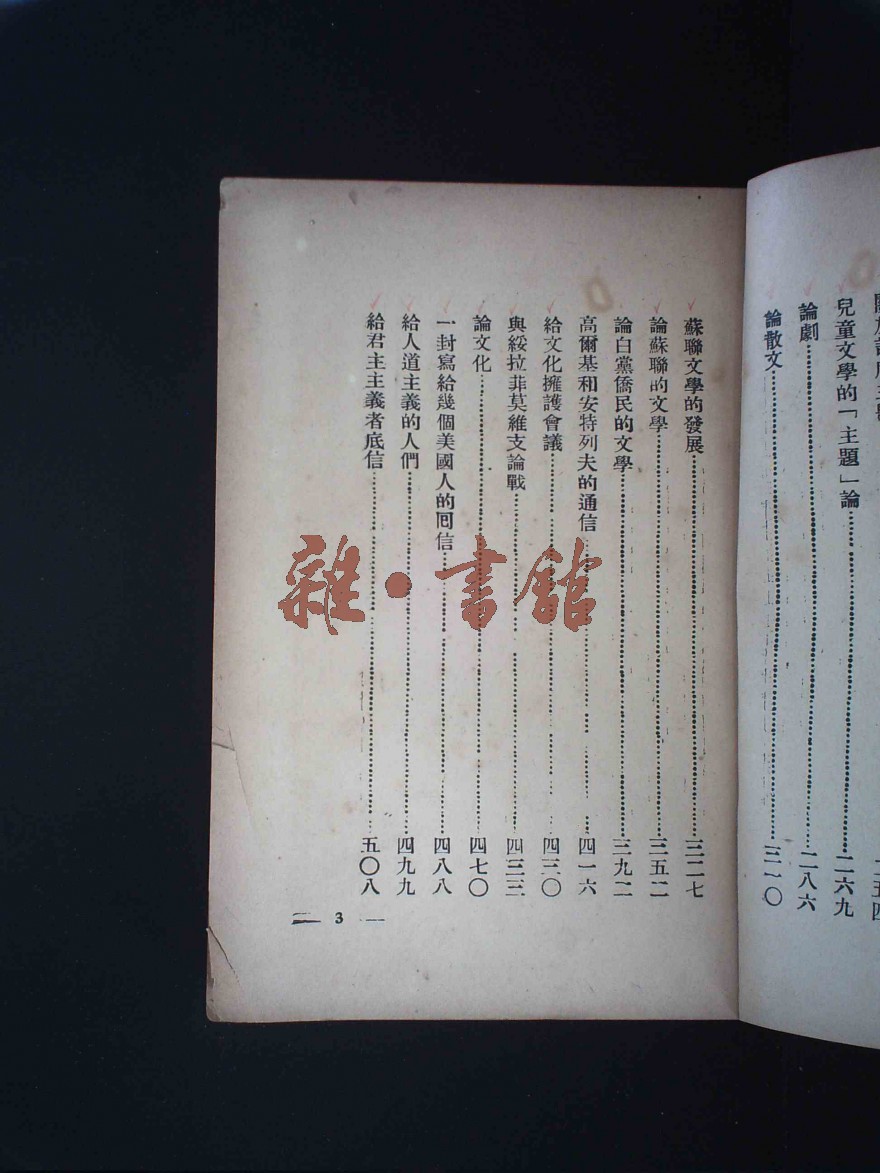 兒童文學的「主題」論……二六九
論劇……二八六
論散文……三一〇
蘇聯文學的發展……三二七
論蘇聯的文學……三五二
論白黨僑民的文學……三九二
高爾基和安特列夫的通信……四一六
給文化擁護會議……四三〇
與綏拉菲莫維支論戰……四三三
論文化……四七〇
一封寫給幾個美國人的囘信……四八八
給人道主義的人們……四九九
給君主主義者底信……五〇八
— 3 —
雜·書館